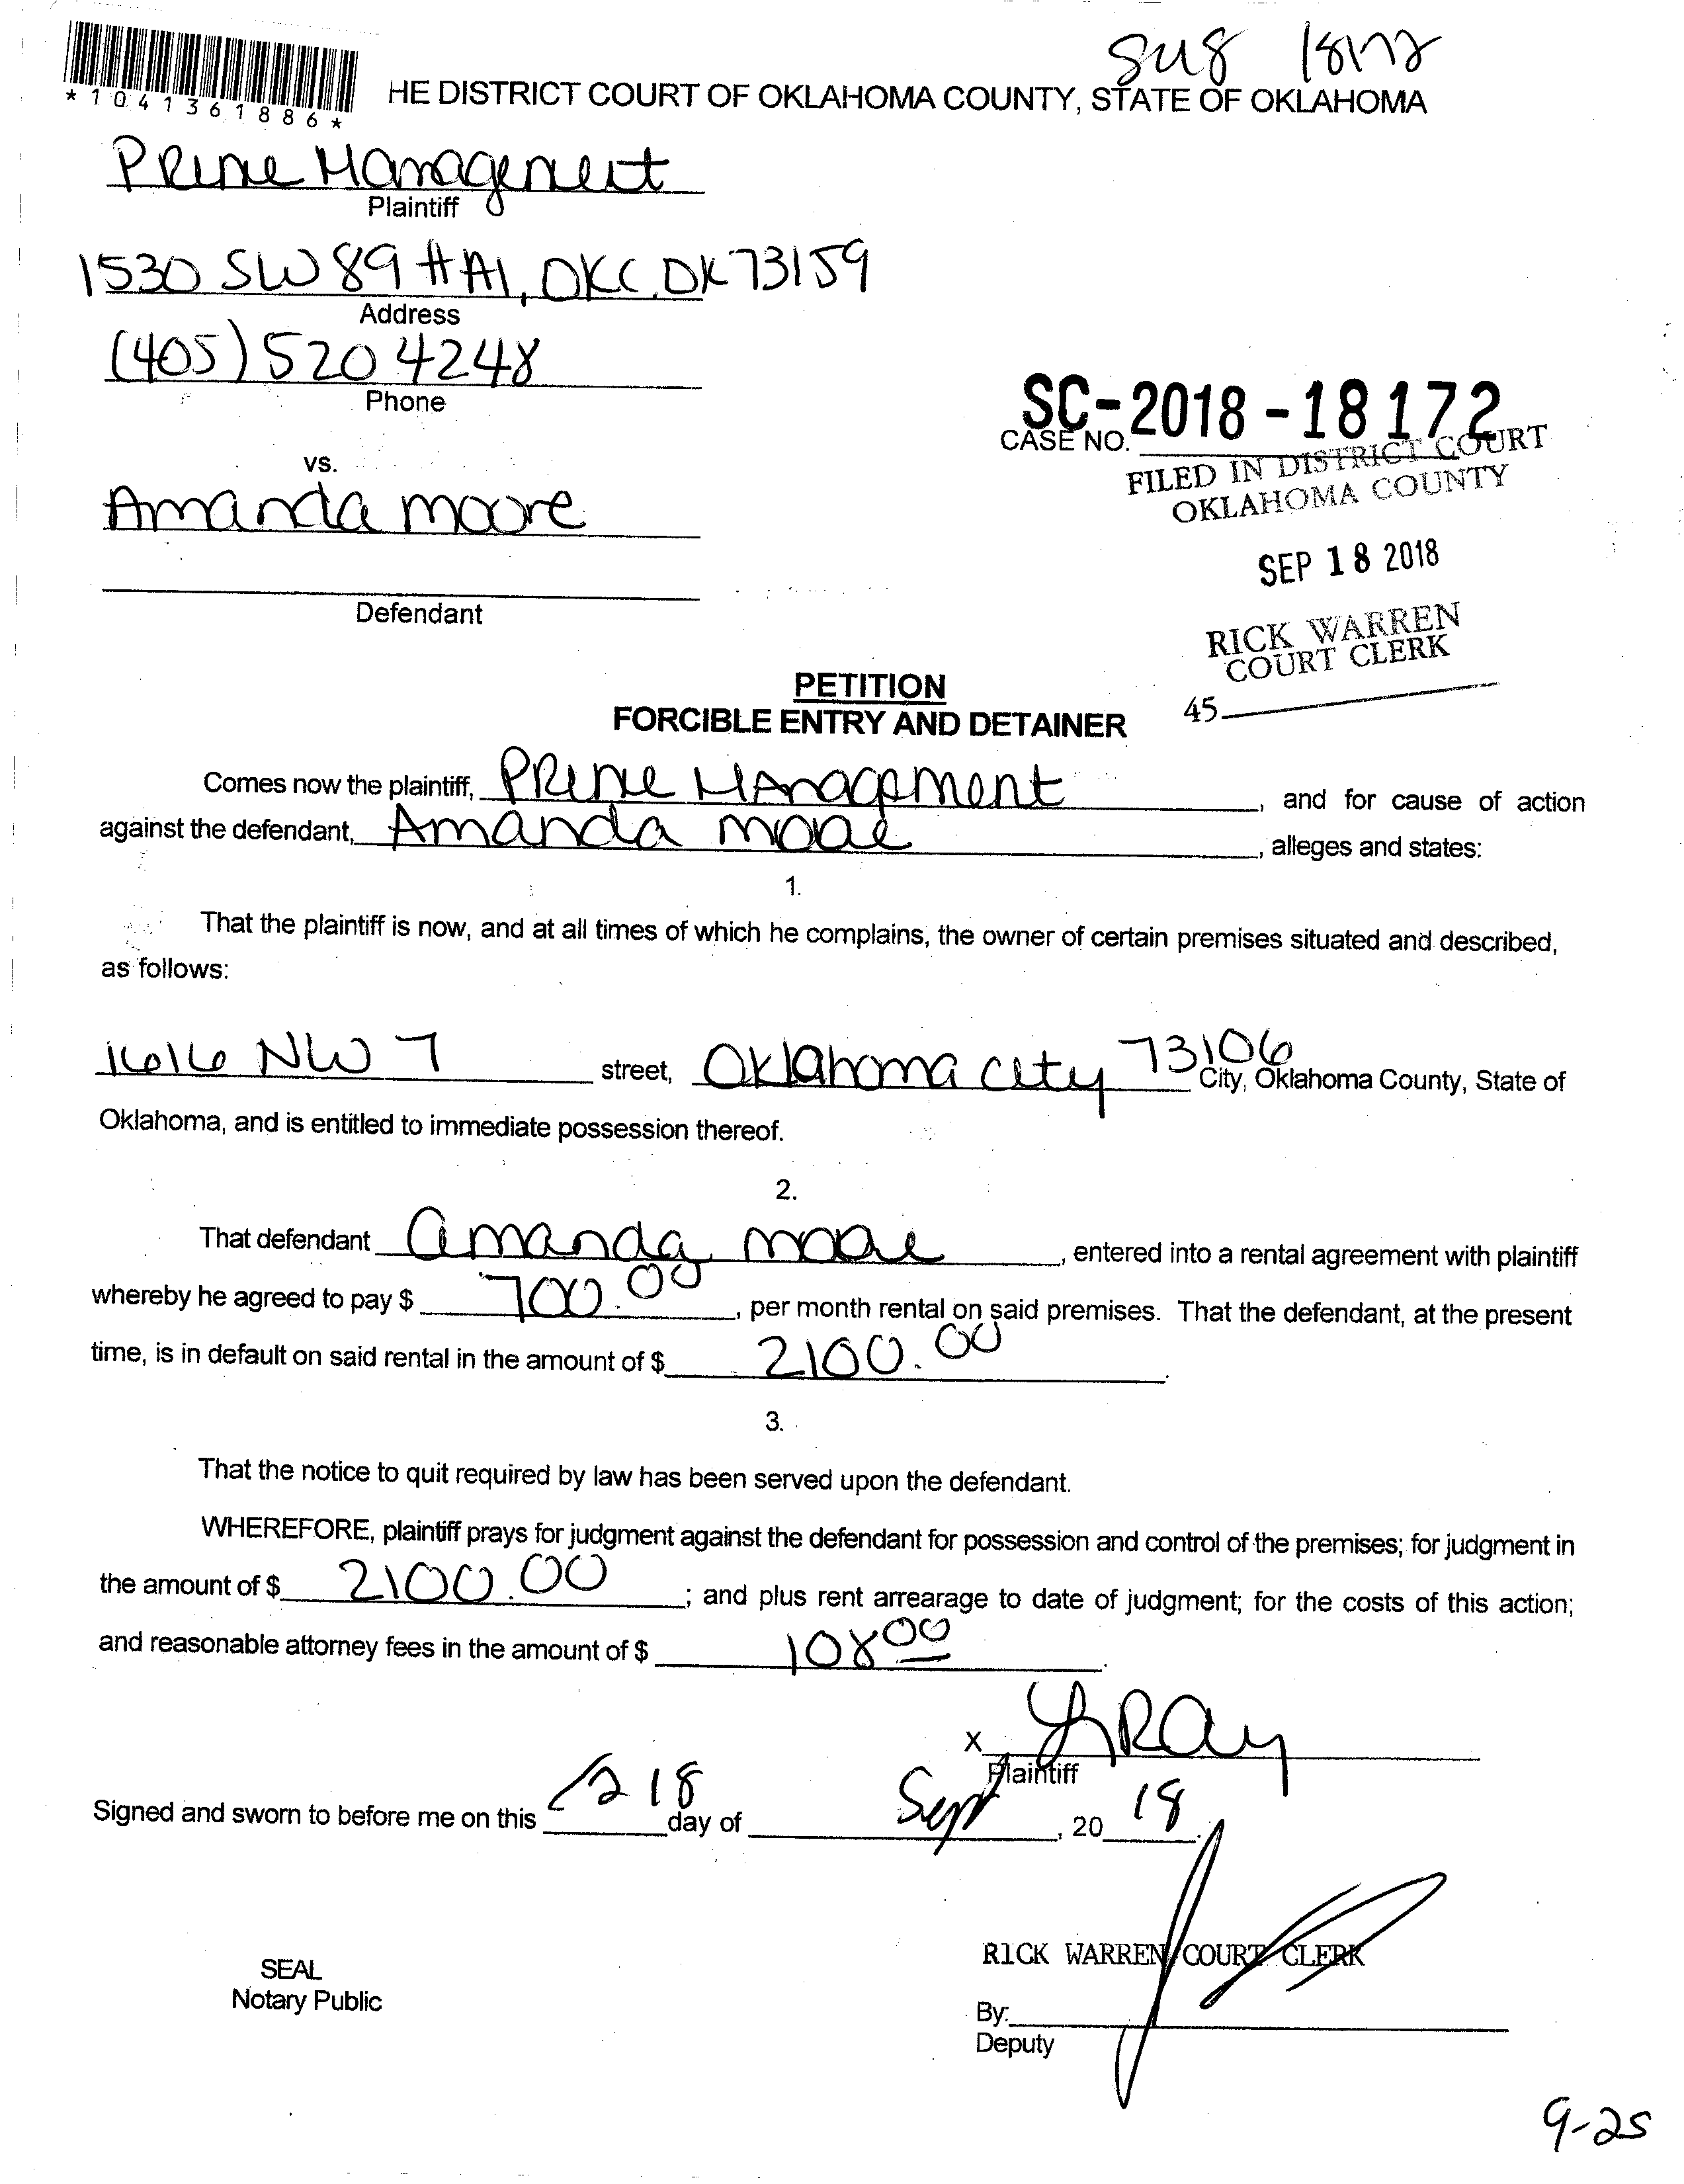 SC18 18172
*1041361886*
HE DISTRICT COURT OF OKLAHOMA COUNTY, STATE OF OKLAHOMA
Prime Management
Plaintiff
1530 SW 89 #A1, OKC, OK 73159
Address
(405) 520 4248
Phone
SC-2018-18172
CASE NO.
FILED IN DISTRICT COURT
OKLAHOMA COUNTY
SEP 18 2018
RICK WARREN
COURT CLERK
45
vs.
Amanda Moore
Defendant
PETITION
FORCIBLE ENTRY AND DETAINER
Comes now the plaintiff, Prime Management, and for cause of action
against the defendant, Amanda Moore, alleges and states:
1.
That the plaintiff is now, and at all times of which he complains, the owner of certain premises situated and described,
as follows:
1616 NW 7 street, Oklahoma City 73106 City, Oklahoma County, State of
Oklahoma, and is entitled to immediate possession thereof.
2.
That defendant Amanda Moore, entered into a rental agreement with plaintiff
whereby he agreed to pay $ 700.00, per month rental on said premises. That the defendant, at the present
time, is in default on said rental in the amount of $ 2100.00.
3.
That the notice to quit required by law has been served upon the defendant.
WHEREFORE, plaintiff prays for judgment against the defendant for possession and control of the premises; for judgment in
the amount of $ 2100.00; and plus rent arrearage to date of judgment; for the costs of this action;
and reasonable attorney fees in the amount of $ 108 00.
X
Plaintiff
Signed and sworn to before me on this 18 day of Sept, 20 18.
SEAL
Notary Public
RICK WARREN COURT CLERK
By:
Deputy
9-25